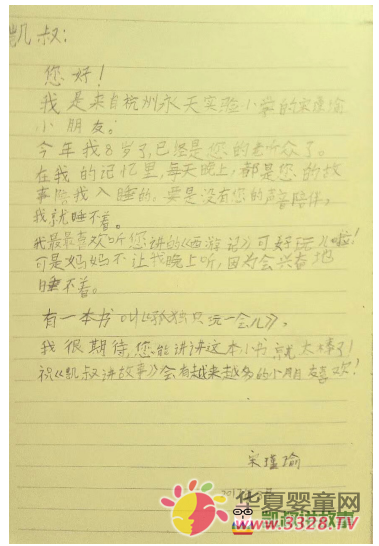 凯叔:
您好!
我是来自杭州永天实验小学的宋瑾瑜
小朋友。
今年我8岁了,已经是您的老听众了。
在我的记忆里,每天晚上,都是您的故
事陪我入睡的,要是没有您的声音陪伴,
我就睡不着。
我最最喜欢听您讲的《西游记》可好玩儿啦!
可是妈妈不让我晚上听,因为会兴奋地
睡不着。
有一本书叫《孤独只玩一会儿》,
我很期待,您能讲讲这本小书就太棒了!
祝《凯叔讲故事》会有越来越多的小朋友喜欢!
宋瑾瑜
华夏婴童网
www.3328.TV